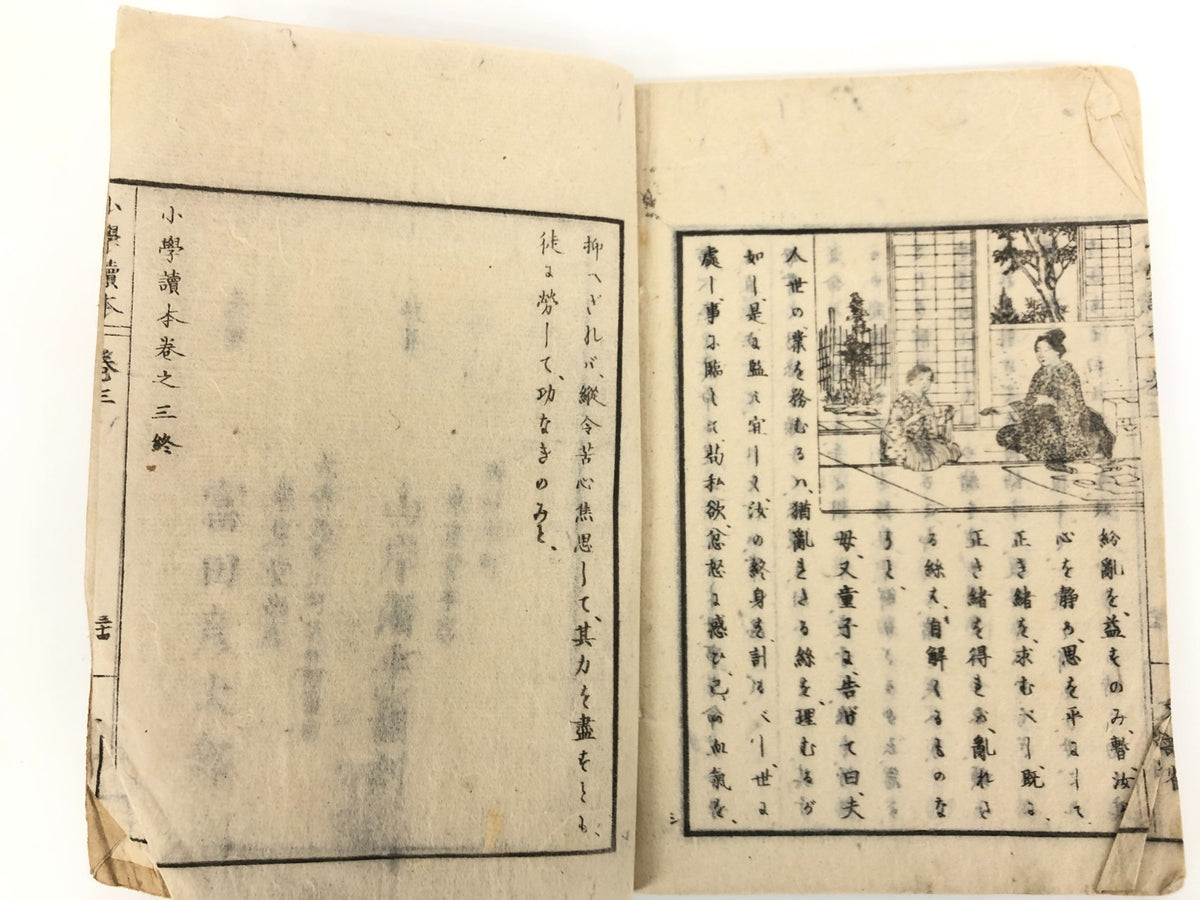 紛亂を、益すのみ、暫、汝の
心を静め、思を平にして、
正き緒を、求むべし、既に、
正き緒を得れば、亂れた
る絲は、自解くるものな
りと、
母、又童子に、告げて曰、夫
人世の、業を務むるハ、猶亂れたる絲を、理むるが
如し、是に鑑て、宜しく、汝の終身を、計るべし、世に
處し、事に臨みて、苟私欲、忿怒に感じ、己の血氣を、
抑へざれバ、縱令苦心焦思して、其力を盡すとも、
徒に勞して、功なきのみと、
小學讀本卷之三終
小學讀本
卷三